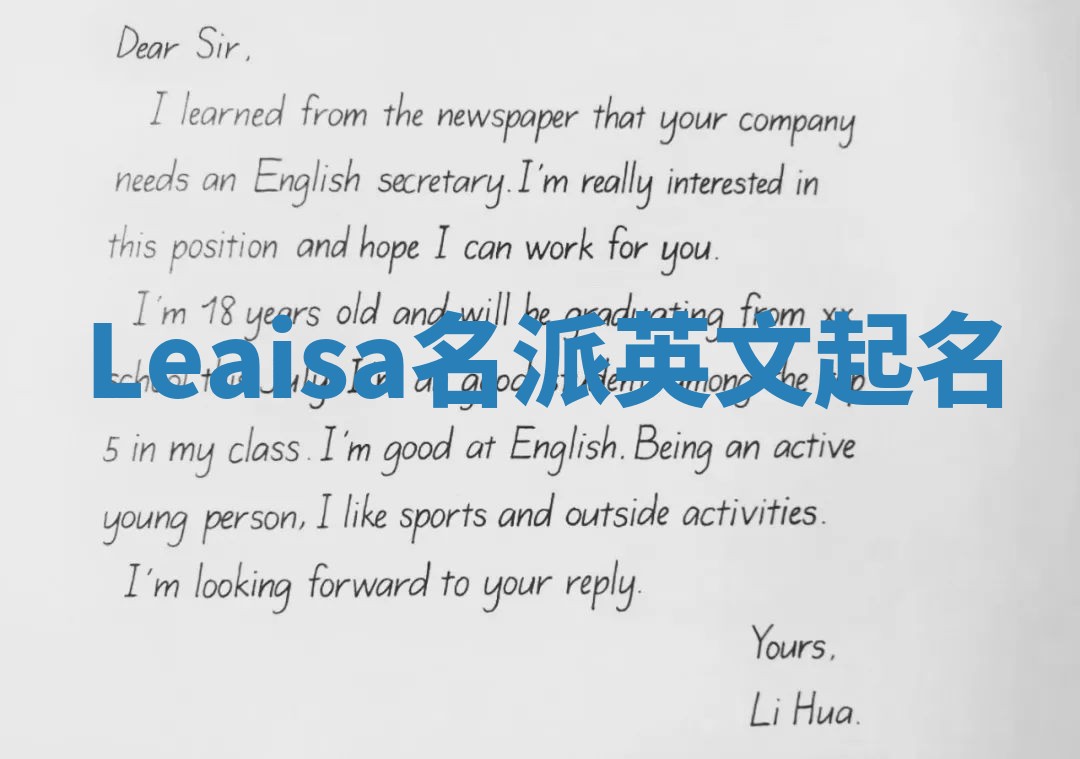 Dear Sir,
I learned from the newspaper that your company
needs an English secretary. I'm really interested in
this position and hope I can work for you.
I'm 18 years old and will be graduating from xx
Leaisa名派英文起名
school this July. I'm a good student among the top
5 in my class. I'm good at English. Being an active
young person, I like sports and outside activities.
I'm looking forward to your reply.
Yours,
Li Hua.